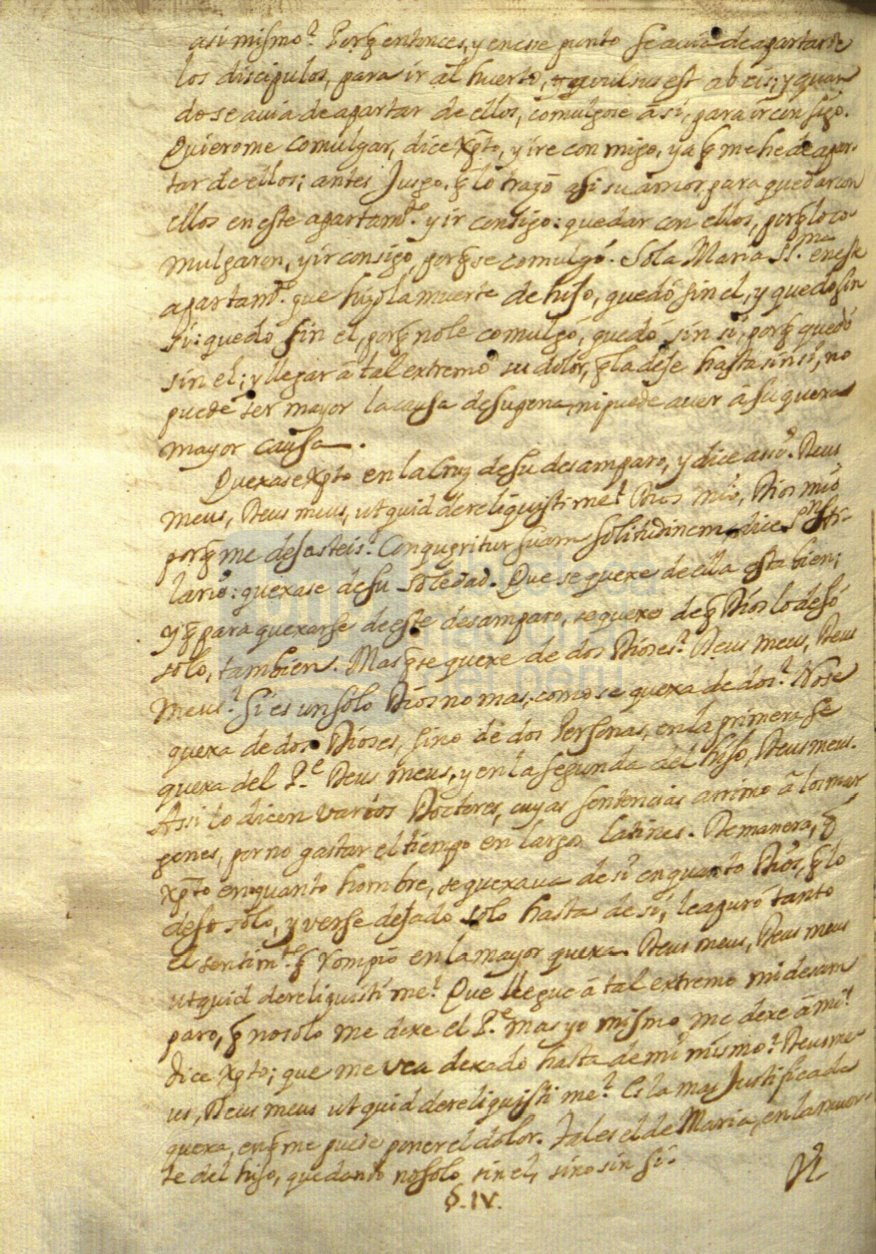 asi mismo? Porq̃ entonces, y en esse punto se auia de apartar de
los discipulos, para ir al huerto, auulsus est ab eis; y quan
do se auia de apartar de ellos, comulgose à sí, para ir consigo.
Quierome comulgar, dice Xpto, y ire conmigo, ya q̃ me he de apar-
tar de ellos; antes Juzgo, q̃ lo trazó asi su amor para quedar con
ellos en este apartamto. y ir consigo: quedar con ellos, porq̃ lo co-
mulgaron, y ir consigo, porq̃ se comulgó. Sola Maria SSma. en este
apartamto. que hizo la muerte de hijo, quedó sin el, y quedó sin
sí: quedó sin el, porq̃ no le comulgó, quedó sin sí, porq̃ quedó
sin el; y llegar à tal extremo su dolor, q̃ la deje hasta sin sí, no
puede ser mayor la causa de su pena, ni puede auer à su quexa
mayor causa.
Quexase Xpto en la Cruz de su desamparo, y dice assi. Deus
meus, Deus meus, ut quid dereliquisti me? Dios mio, Dios mio
porq̃ me dejasteis? Conqueritur suam solitudinem, dice Sn. Hi-
lario: quexase de su soledad. Que se quexe de ella està bien;
y q̃ para quexarse de este desamparo, se quexe de q̃ Dios lo dejó
solo, tambien. Mas q̃ se quexe de dos Dioses? Deus meus, Deus
meus? Si es un solo Dios no mas, como se quexa de dos? No se
quexa de dos Dioses, sino de dos Personas, en la primera se
quexa del Pe. Deus meus, y en la segunda del hijo, Deus meus.
Assi lo dicen varios Doctores, cuyas sentencias arrimo à los mar
genes, por no gastar el tiempo en largos latines. De manera, q̃
Xpto en quanto hombre, se quexaua de sí en quanto Dios, q̃ lo
dejó solo, y verse dejado solo hasta de sí, le apuró tanto
el sentimto. q̃ rompió en la mayor quexa. Deus meus, Deus meus
ut quid dereliquisti me? Que llegue à tal extremo mi desam
paro, q̃ no solo me dexe el Pe. mas yo mismo me dexe à mi?
dice Xpto; que me vea dexado hasta de mi mismo? Deus me-
us, Deus meus ut quid dereliquisti me? Es la mas Justificada
quexa, en q̃ me puede poner el dolor. Tal es el de Maria, en la muer-
te del hijo, quedando no solo sin el, sino sin sí.
§. IV.